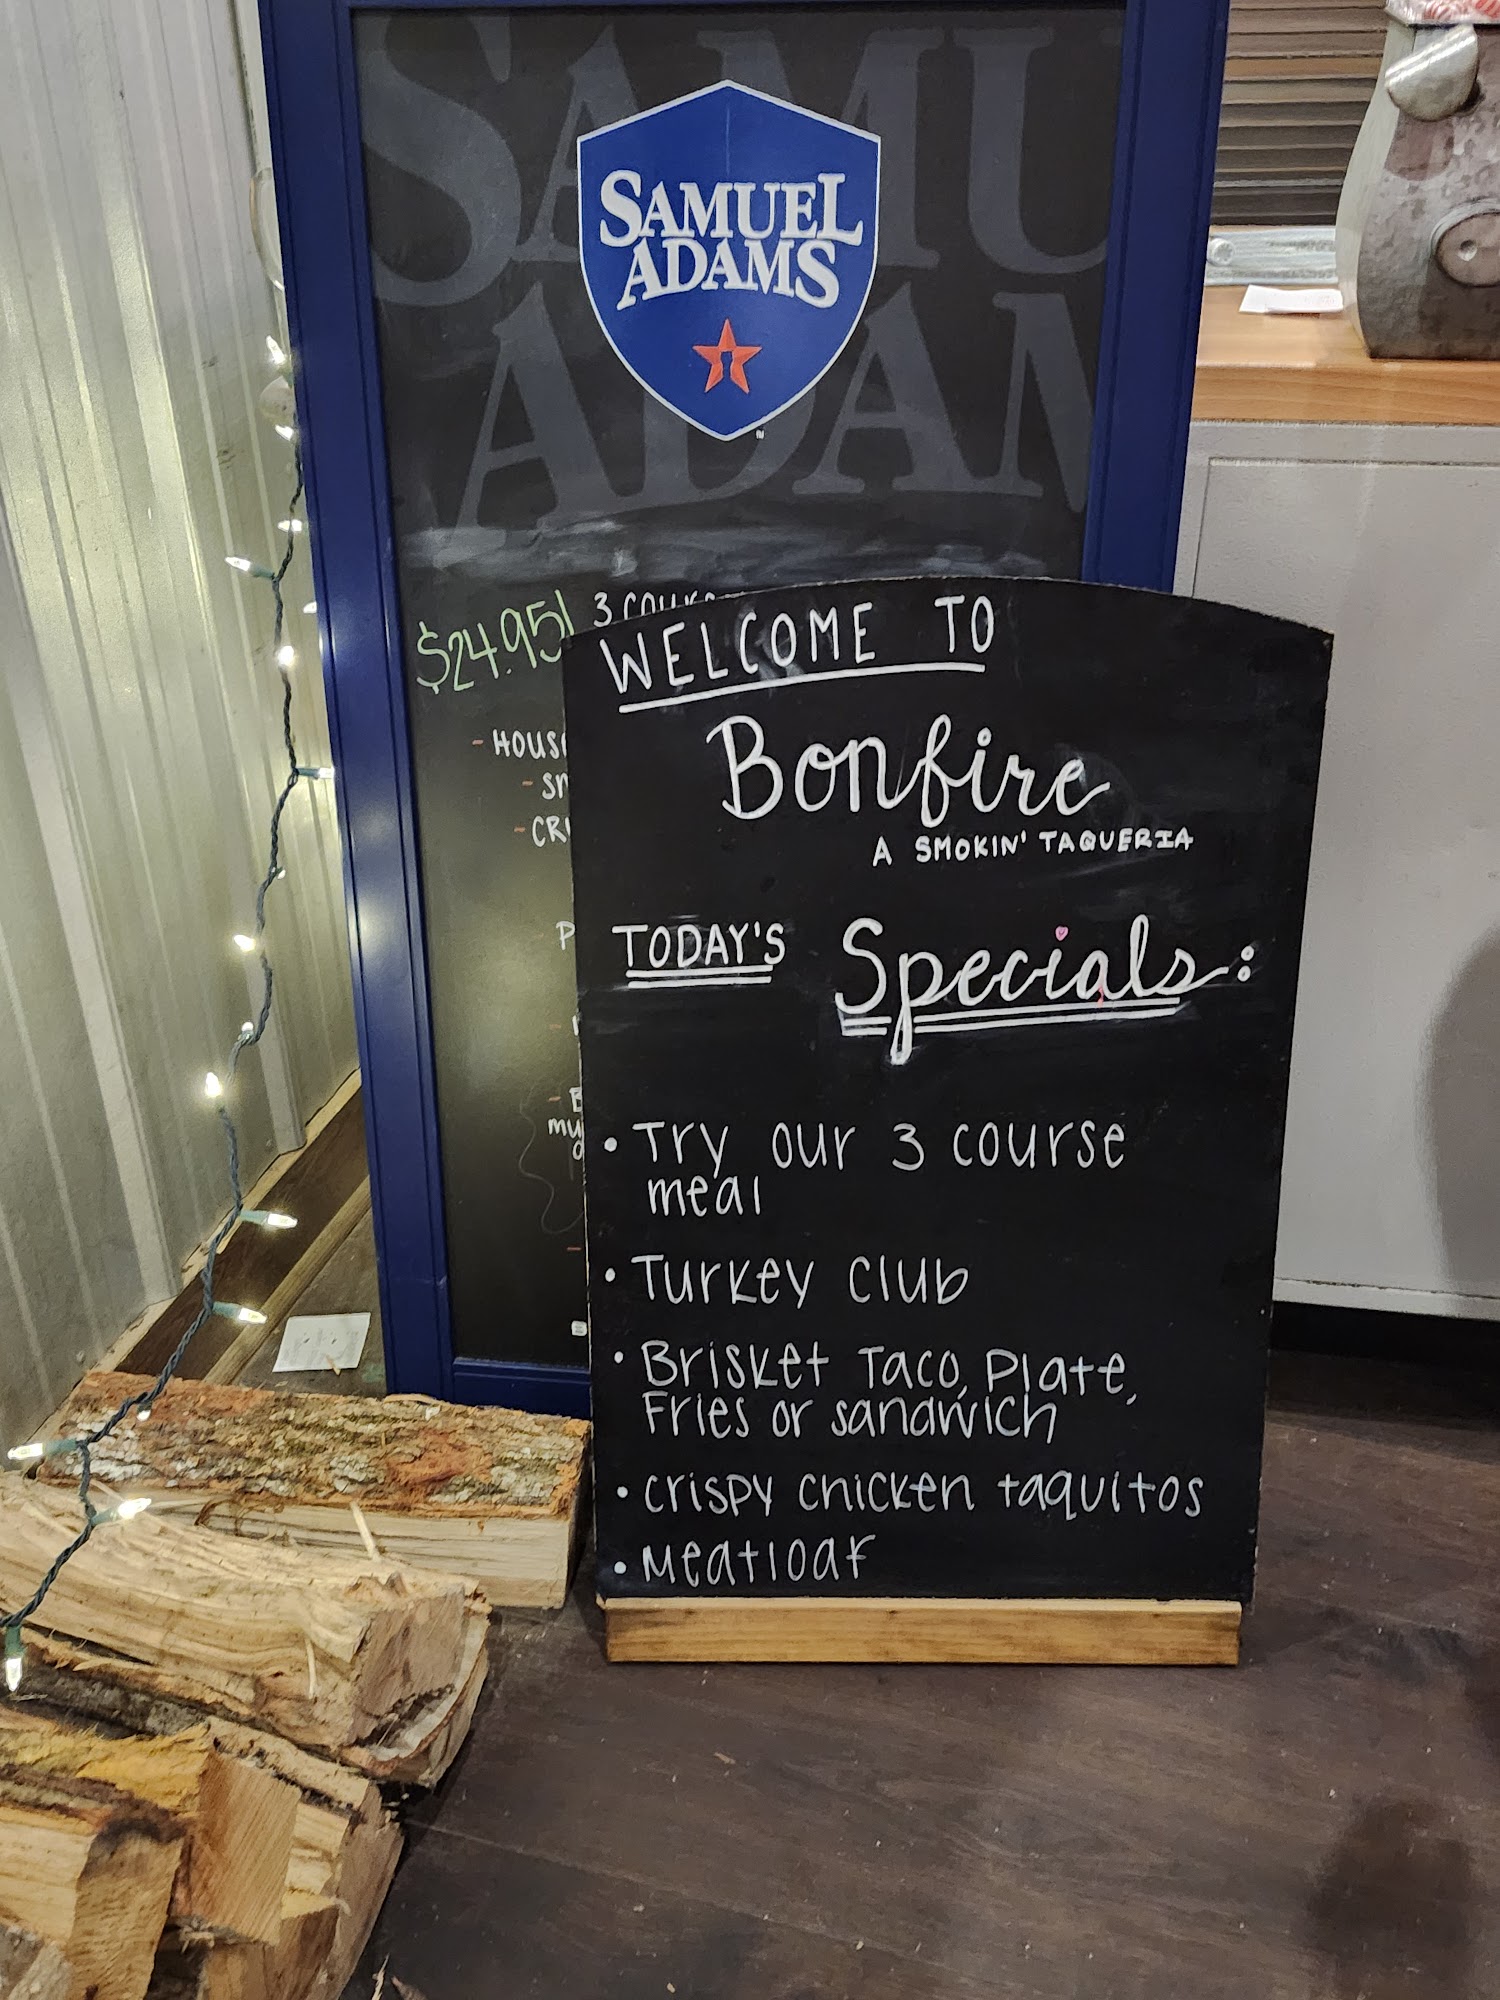 SAMUEL
ADAMS
SAMUEL
ADAMS
$24.95!
3 COURSE
WELCOME TO
Bonfire
A SMOKIN' TAQUERIA
TODAY'S Specials:
• Try our 3 course
meal
• Turkey club
• Brisket Taco, Plate,
Fries or sandwich
• crispy chicken taquitos
• Meatloaf